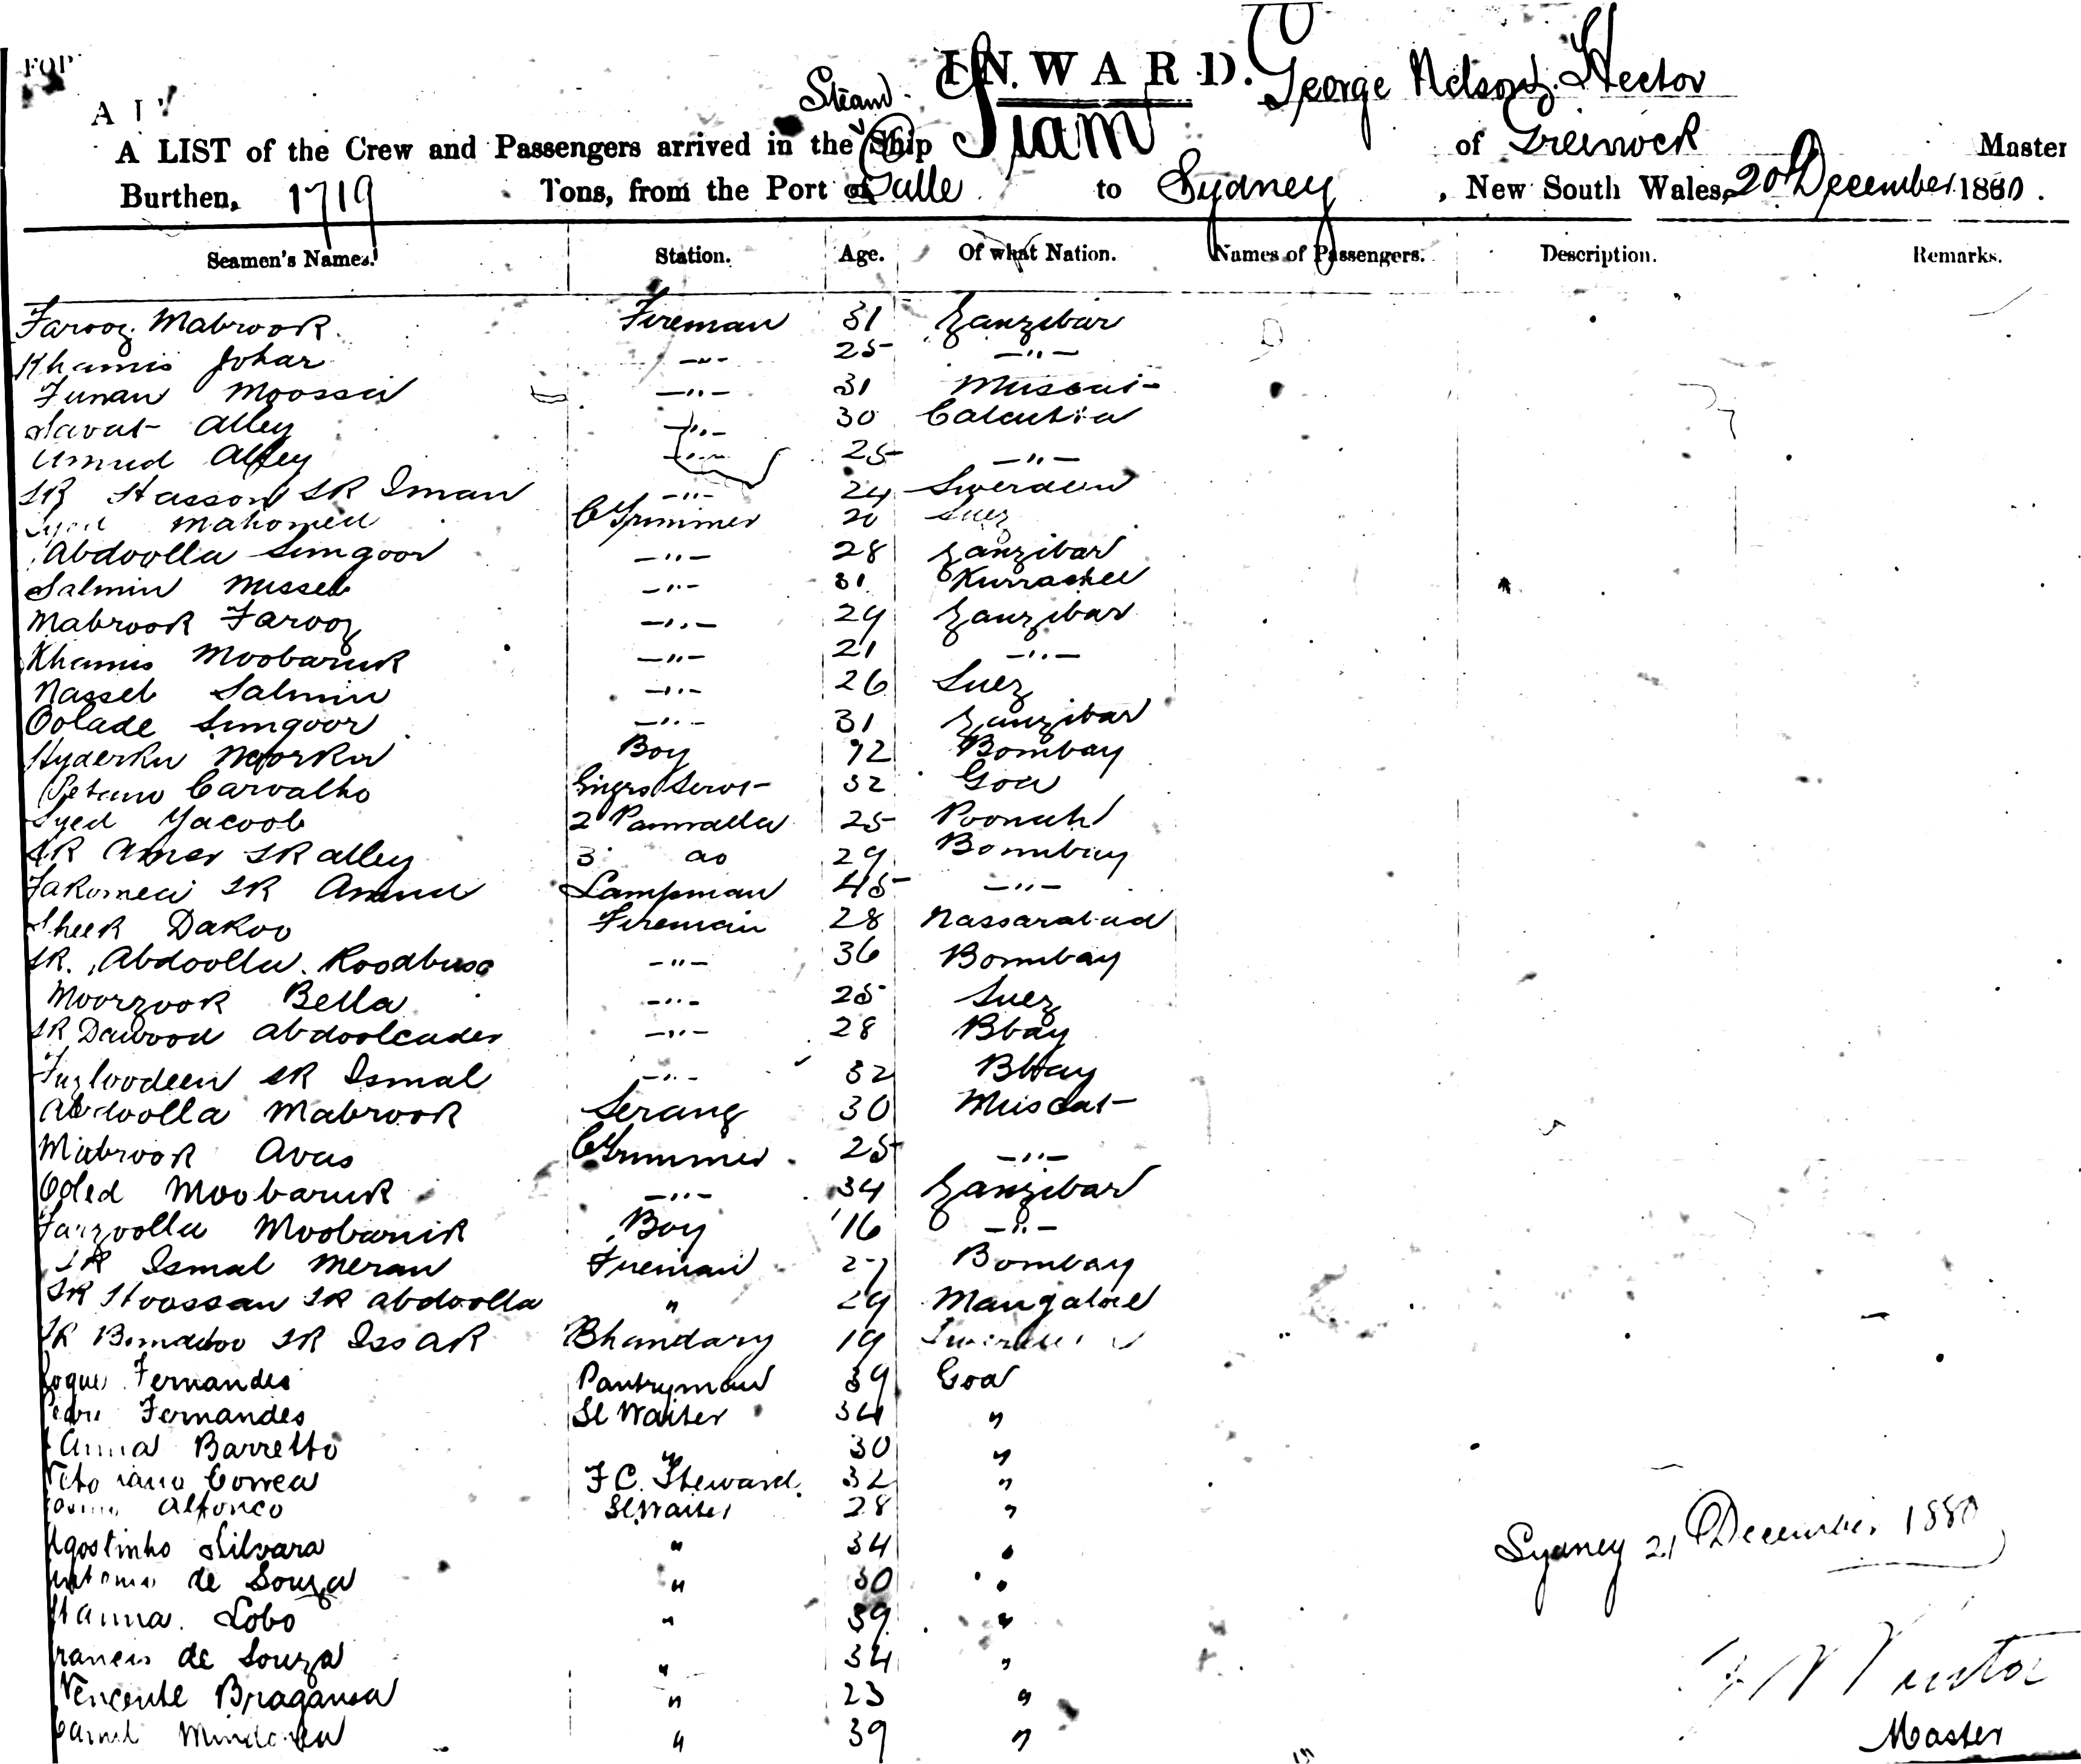 INWARD. George Nelson Hector
Steam
A LIST of the Crew and Passengers arrived in the Ship Siam of Greenock Master
Burthen, 1719 Tons, from the Port of Galle to Sydney, New South Wales, 20 December 1880.
Seamen's Names. Station. Age. Of what Nation. Names of Passengers. Description. Remarks.
Farooz Mabrook Fireman 31 Zanzibar
Khamis Johar —"— 25 —"—
Juman Moossa —"— 31 Muscat
Alley —"— 30 Calcutta
Alley —"— 25 —"—
SK Hasson SK Iman —"— 24
Syed Mahomed C Trimmer 20 Suez
Abdoolla Sungoor —"— 28 Zanzibar
Salmin —"— 31 Kurrachee
Mabrook Farooz —"— 29 Zanzibar
Khamis Moobaruk —"— 21 —"—
Nasseb Salmin —"— 26 Suez
Oolade Sungoor —"— 31 Zanzibar
Boy 12 Bombay
Carvalho Engrs Servt 32 Goa
Syed Yacoob 2 Pannialla 25 Poonah
SK Amer SK Alley 3 do 29 Bombay
SK Lampman 45 —"—
Sheek Dakoo Fireman 28 Nassarabad
SK. Abdoolla. —"— 36 Bombay
Moorzook Bella —"— 25 Suez
SK Dawood Abdoolcader —"— 28 Bbay
Fuzloodeen SK Ismal —"— 32 Bbay
Abdoolla Mabrook Serang 30 Muscat
Mabrook Avas C Trimmer 25 —"—
Ooled Moobaruk —"— 34 Zanzibar
Moobaruk Boy 16 —"—
SK Ismal Meran Fireman 27 Bombay
SK Hoossan SK Abdoolla " 29 Mangalore
SK SK Issak Bhandary 19
Roque Fernandes Pantryman 39 Goa
Fernandes Sl Waiter 34 "
Barretto " 30 "
Correa F C. Steward. 32 "
Alfonco Sl Waiter 28 "
Agostinho Silvara " 34 "
de Souza " 30 "
Lobo " 39 "
Francis de Souza " 34 "
Vencente Braganza " 23 "
" 39 "
Sydney 21 December 1880
Master